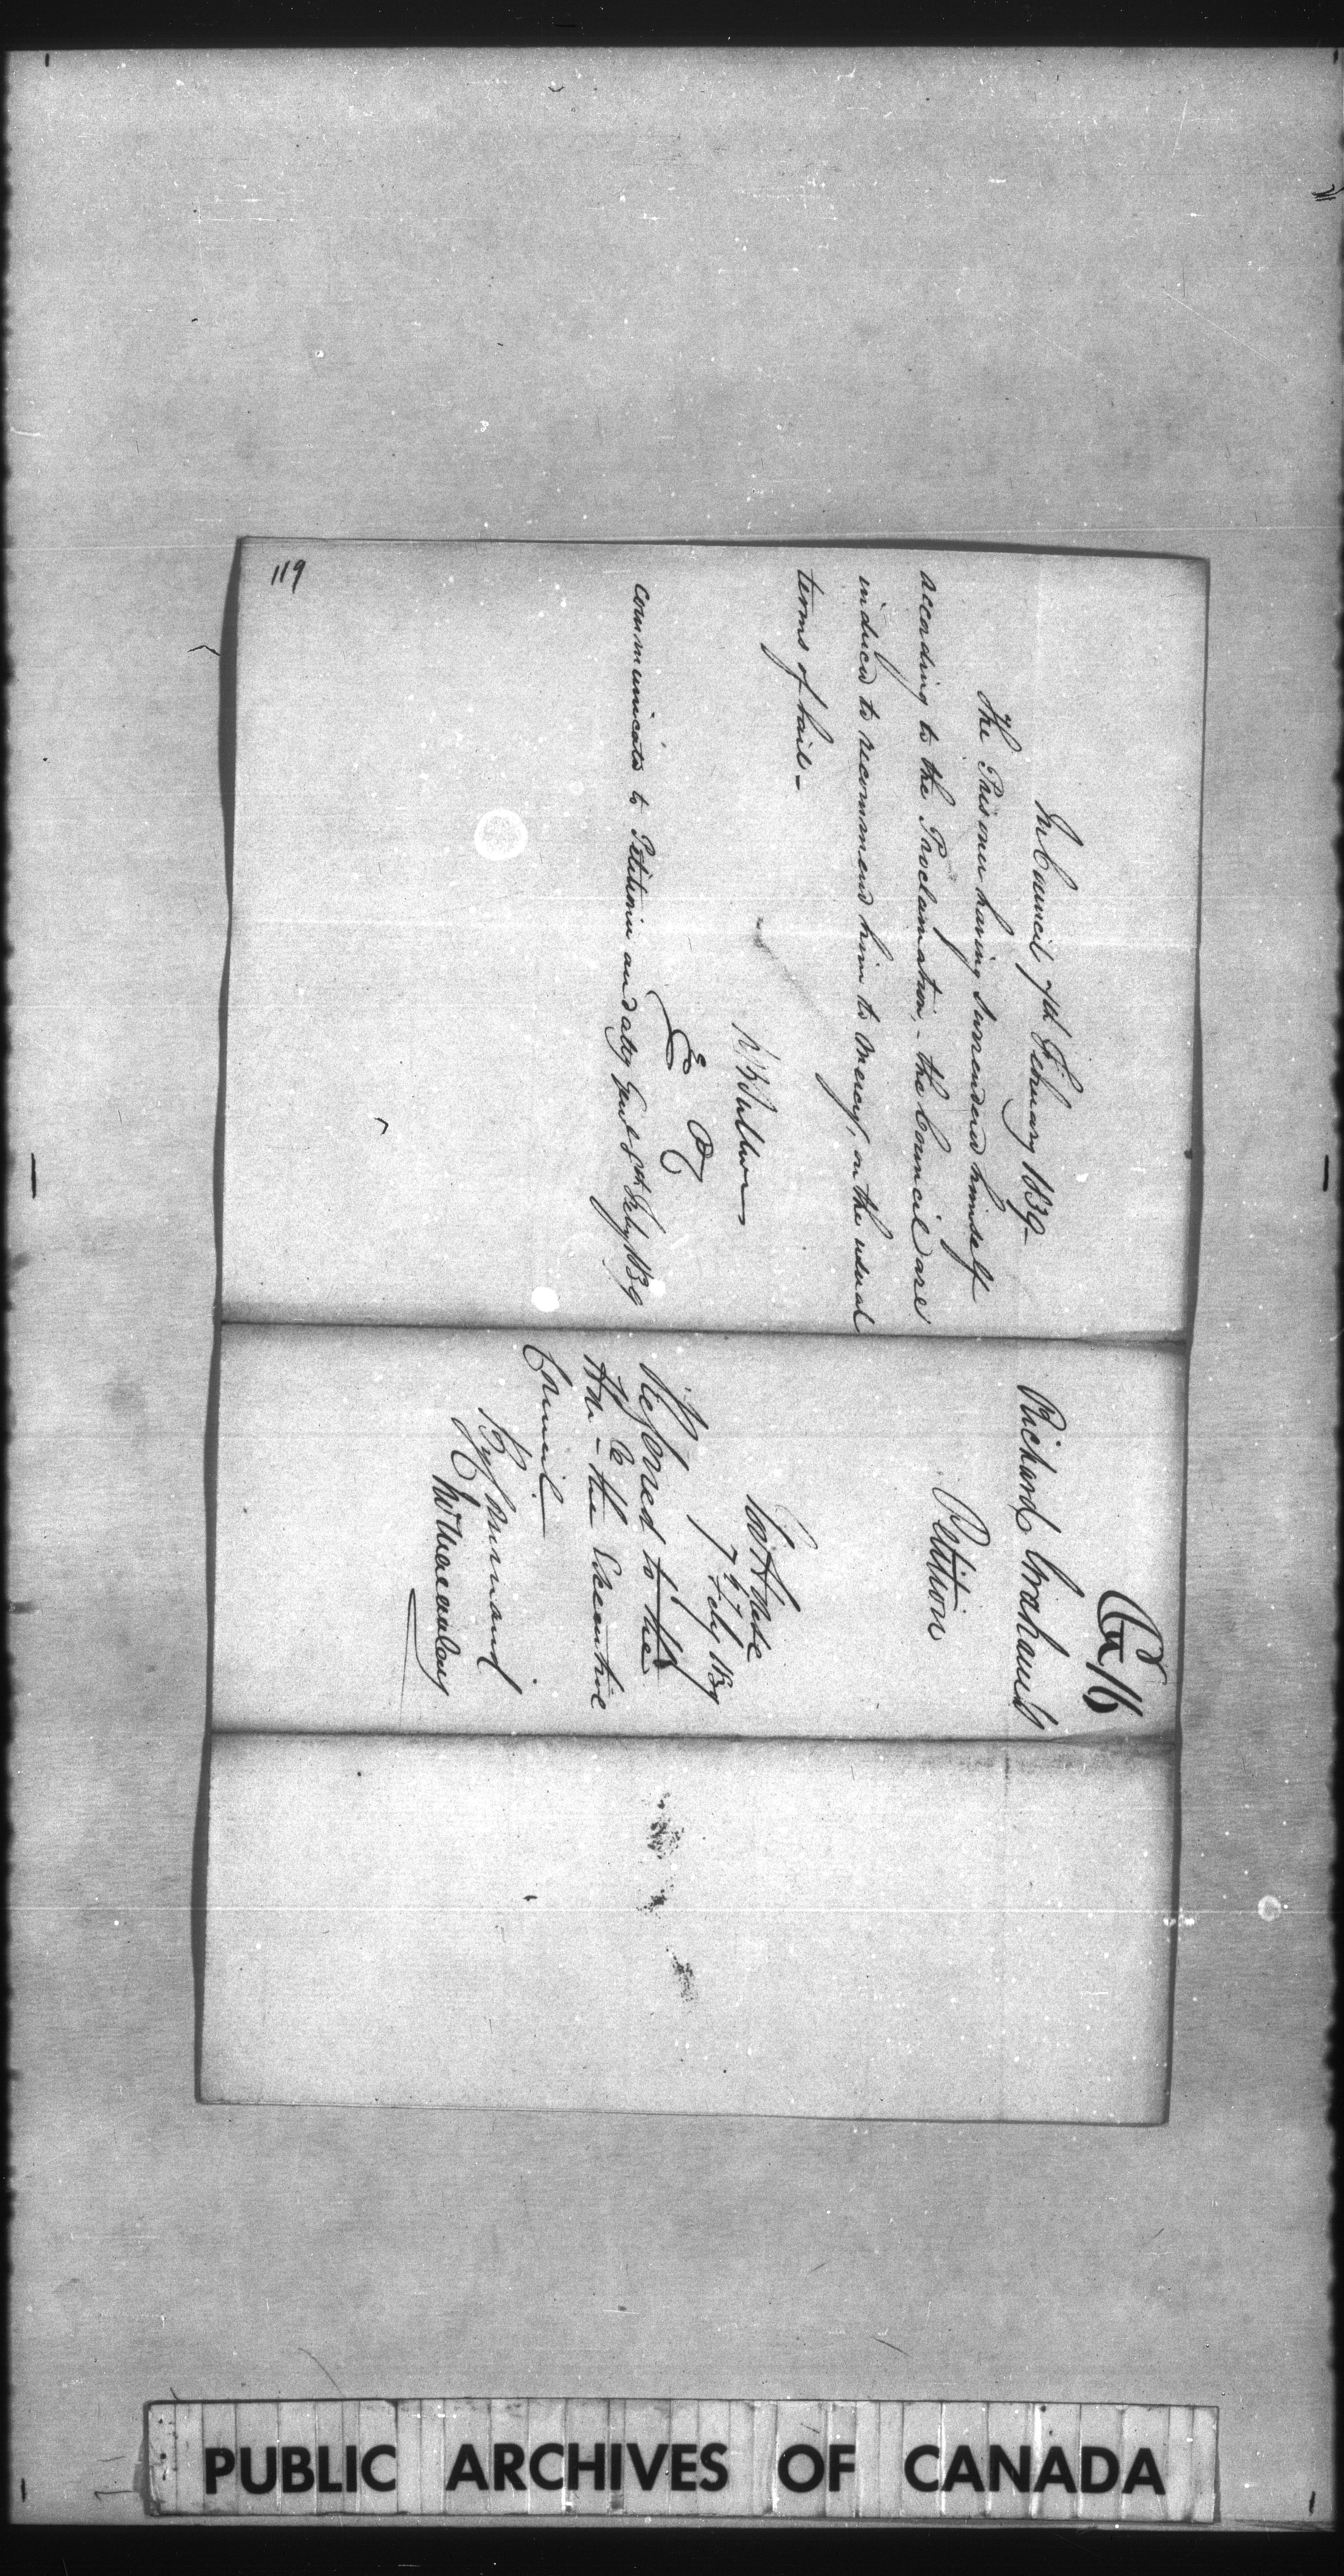 In Council 7th February 1839-
The Prisoner having surrendered himself
according to the Proclamation, - the Council are
induced to recommend him to mercy, on the usual
terms of bail -
R B Sullivan
P C
Communicated to Petitioner and Atty Genl 8th Feby 1839
119
No 16
Richard Graham's
Petition
Govt House
7th Feby 1839
Referred to the
Hon. the Executive
Council -
By Command
Macaulay
PUBLIC ARCHIVES OF CANADA